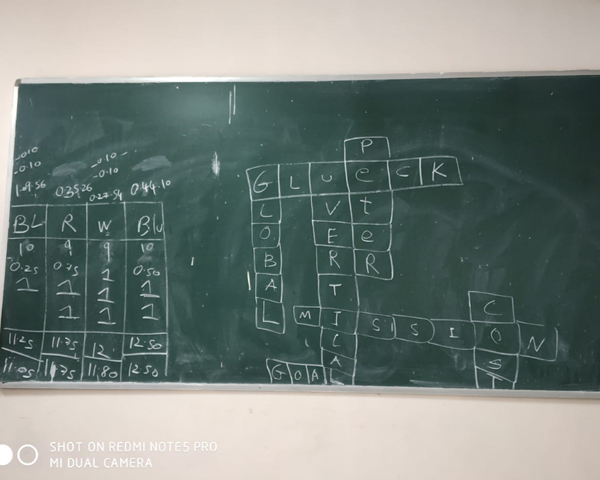 -0.10
-0.10 -0.10
-0.10
0.35.26 0.27.54 0.44.10
BL R W BlU
10 9 9 10
0.25 0.75 1 0.50
1 1 1 1
1 1 1
11.25 11.75 12 12.50
11.05 11.75 11.80 12.50
PeteR
GLueCK
GLOBAL
VERTICAL
MISSION
COST
GOAL
SHOT ON REDMI NOTE5 PRO
MI DUAL CAMERA